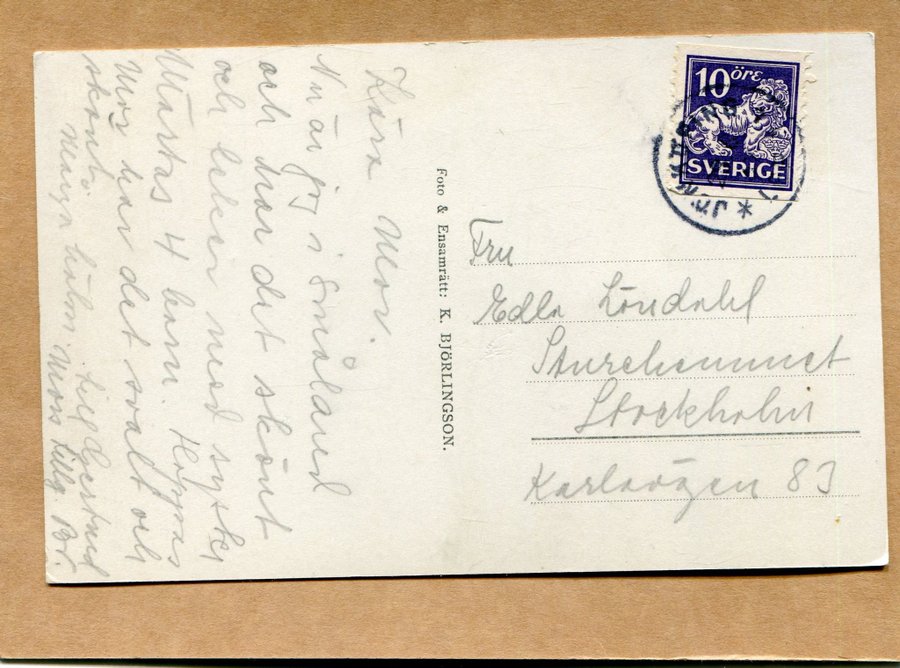 Kära Mor.
Nu är jag i Småland
och har det skönt
och leker med syster
Märtas 4 barn. Hoppas
Mor har det svalt och
skönt.
Mors tillg. Br.
Foto & Ensamrätt: K. BJÖRLINGSON.
10 öre
SVERIGE
Fru
Edla Löndahl
Sturehemmet
Stockholm
Karlavägen 83